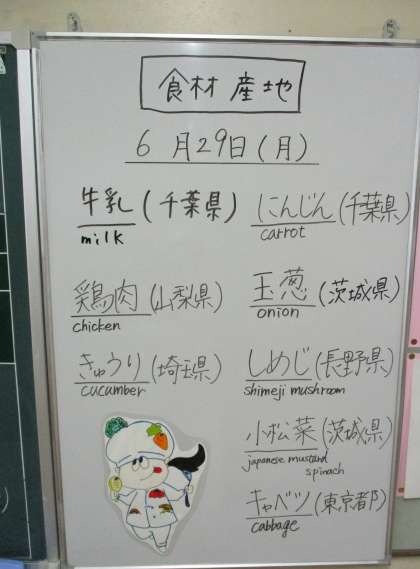 食材 産地
6月29日(月)
牛乳(千葉県)
milk
にんじん(千葉県)
carrot
鶏肉(山梨県)
chicken
玉葱(茨城県)
onion
きゅうり(埼玉県)
cucumber
しめじ(長野県)
shimeji mushroom
小松菜(茨城県)
japanese mustard
spinach
キャベツ(東京都)
cabbage